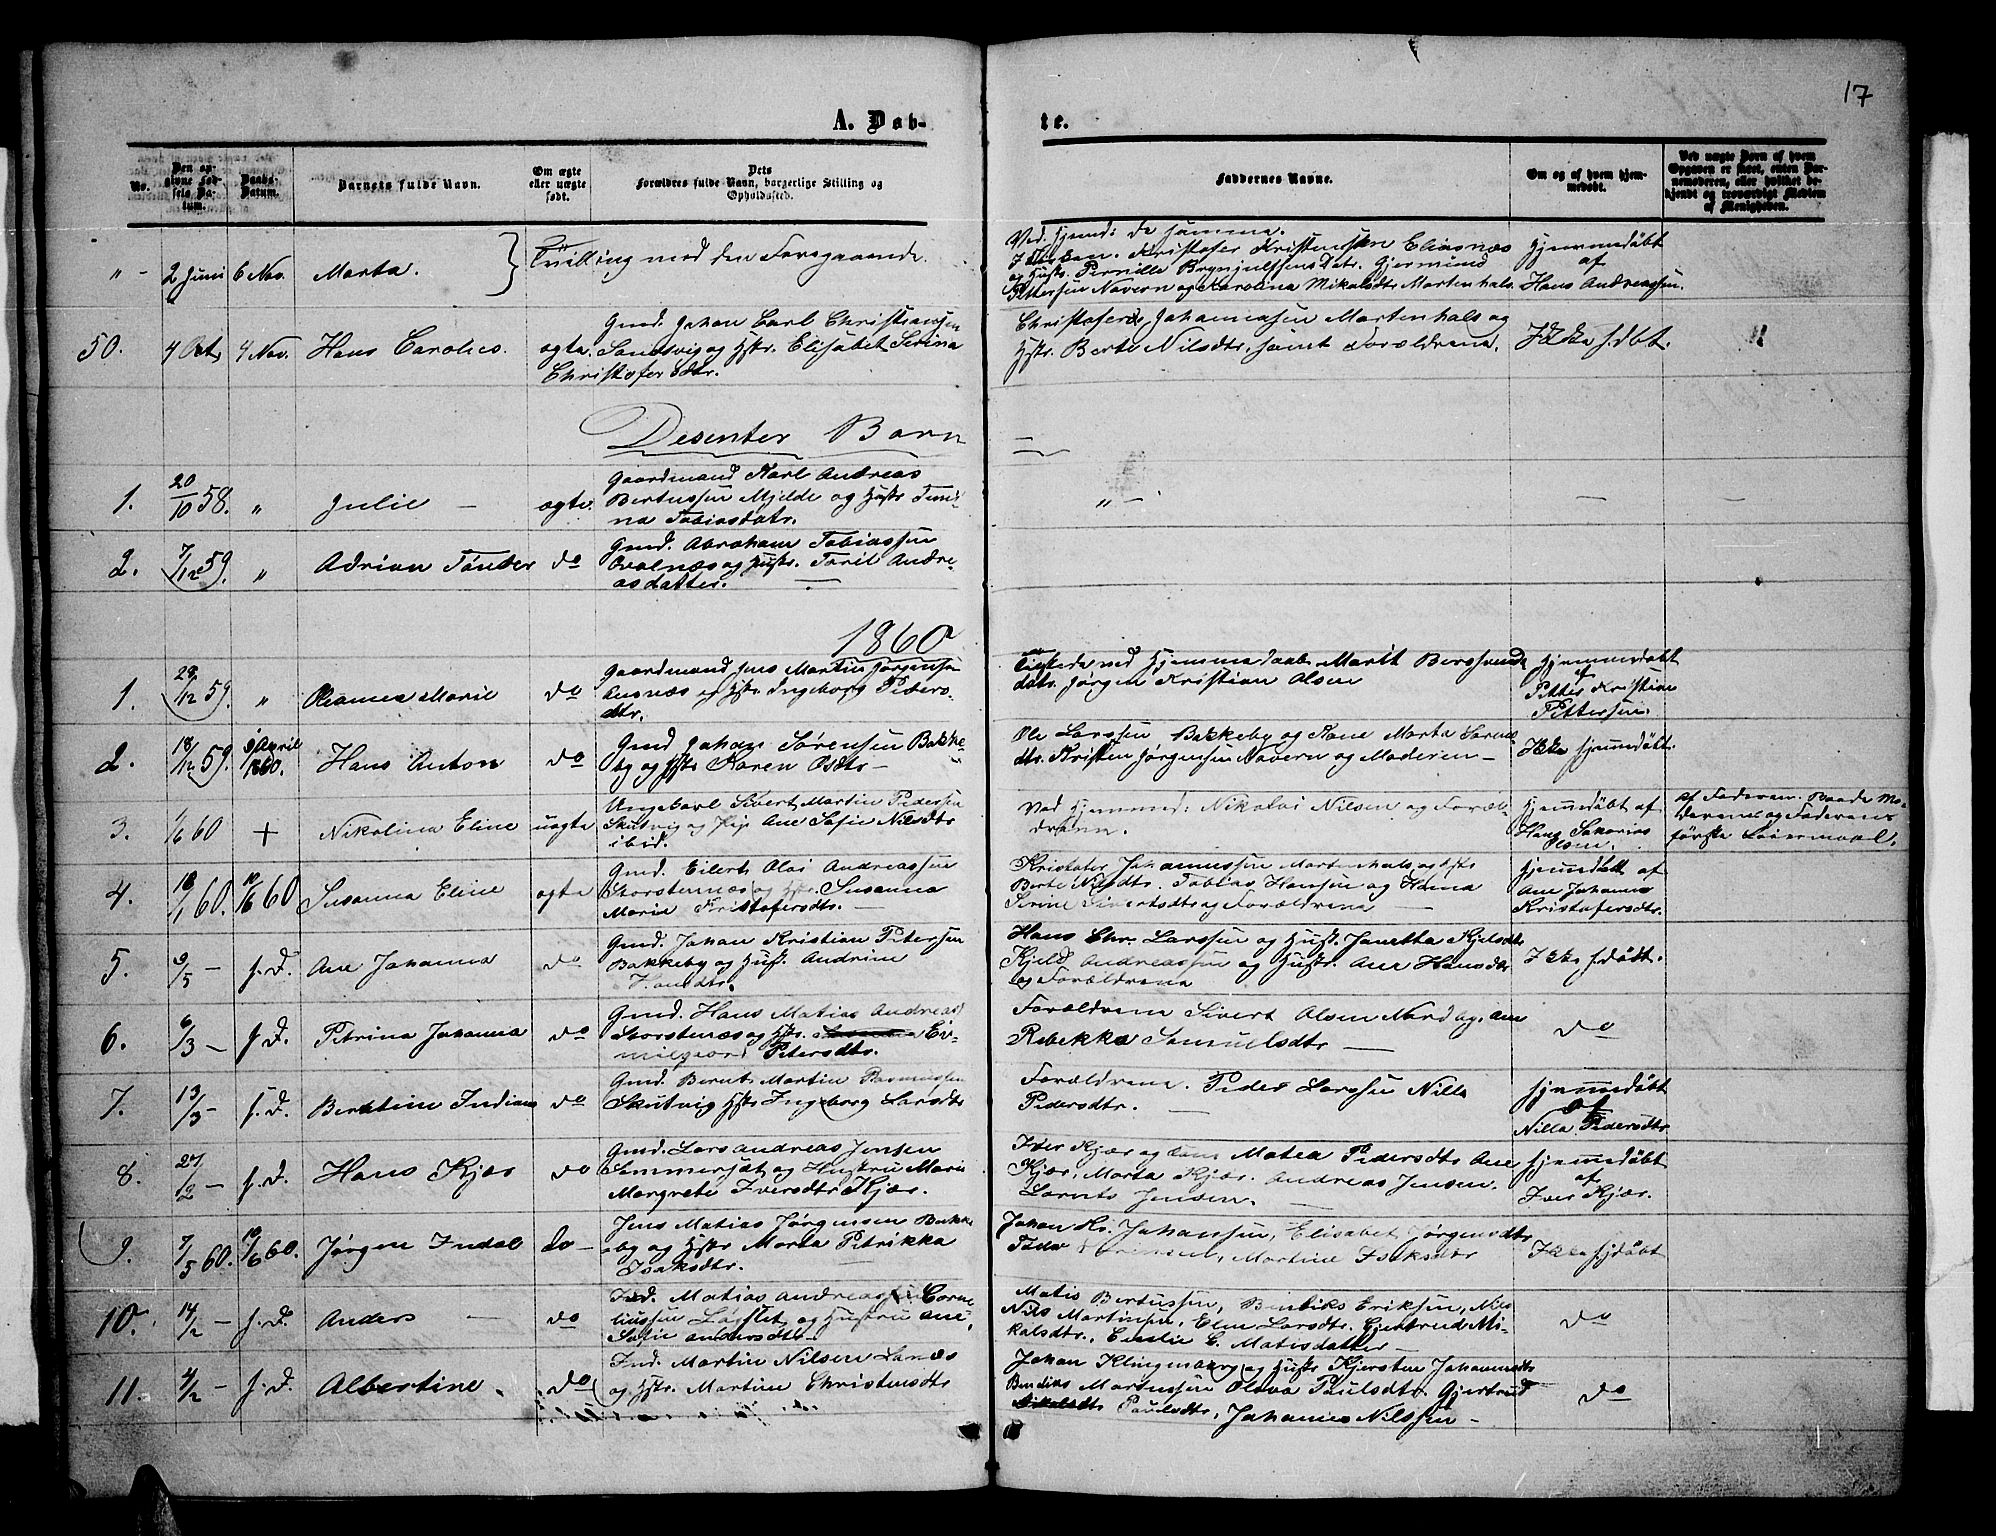 17
A. Døb-
te.
No.
Den an-
givne Fød-
sels Da-
tum.
Daabs-
Datum.
Barnets fulde Navn.
Om ægte
eller uægte
født.
Dets
Forældres fulde Navn, borgerlige Stilling og
Opholdssted.
Faddernes Navne.
Om og af hvem hjem-
medøbt.
Ved uægte Børn af hvem
Opgaven er skeet, enten Bar-
nemoderen, eller hvilket be-
kjendt og troværdigt Medlem
af Menigheden.
" - 2 Juni 6 Nov. Marta.
Tvilling med den Foregaaende.
Ved Hjemd: de samme.
Kristofer Kristensen Eliasnæs
og Hustr. Pernille Brynjulfsens Datr. Gjermund
Pettersen Navern og Karolina Mikalsdtr Martenhals.
Hjemmedöbt
af
Hans Andreassen.
50. 4 Oct. 4 Nov. Hans Carolus.
ægte
Gmd. Johan Carl Christiansen
Sandsvig og Hstr. Elisabet Serina
Christofersdtr.
Christofer Johannesen Martenhals og
Hstr. Berte Nilsdtr. samt Forældrene.
Ikke h.dbt.
"
Desenter Børn
1. 20/10 58. " Julie - ægte.
Gaardmand Karl Andreas
Bertussen Mjelde og Hstr Temi-
na Tobiasdatr.
" -
2. 7/12 59. " Adrian Tönder do
Gmd. Abraham Tobiassen
og Hustr. Toril Andre-
asdatter.
1860
1. 29/12 59. " Marie do
Gaardmand Jens Martin Jørgensen
og Hstr Ingeborg Peders-
dtr.
ved Hjemmedaab Marit Bersvends
datr. Jørgen Kristian Olsen
Hjemmedöbt
af
Petter Kristian
Pettersen.
2. 18/12 59. 9 April 1860. Hans Anton do
Gmd Johan Sørensen Bakke-
by og Hstr Karen Osdtr -
Ole Larssen Bakkeby og Kone Marta Søren-
dtr. Kristen Jørgensen Navern og Moderen -
Ikke hjemdöbt.
3. 1/6 60 + Nikolina Eline uægte
Ungkarl Sivert Martin Pedersen
Skutvig og Pige Ane Sofie Nilsdtr
ibid.
Ved Hjemmed: Nikolai Nilsen og Foræl-
drene.
Hjemmdöbt af
Hans Sakarias
Olsen.
Af Faderen. Baade Mo-
derens og Faderens
første Leiermaal.
4. 18/1 60. 10/6 60 Susanna Eline ægte
Gmd. Eilert Olai Andreassen
Storstennæs og Hstr. Susanna
Marie Kristofersdtr. -
Kristofer Johannessen Martenhals og Hstr
Berte Nilsdtr. Tobias Hansen og Hanna
Serine Sivertsdtr og Forældrene -
Hjemdøbt af
Ane Johanna
Kristofersdtr.
5. 9/5 - f. D. Ane Johanna do
Gmd. Johan Kristian Petersen
Bakkeby og Hust. Andrine
Hansdtr.
Hans Chr. Larssen og Hust. Janetta Kjelsdtr.
Kjeld Andreassen og Hustr. Ane Hansdtr
og Forældrene
Ikke hdøbt.
6. 6/3 - f. D. Petrina Johanna do
Gmd. Hans Matias Andreas
Storstennæs og Hstr.
Petersdtr.
Forældrene Sivert Olsen Nord og Ane
Rebekka Samuelsdtr -
do
7. 13/3 - f. D. Berntine Indiane do
Gmd. Bernt Martin Rasmussen
Skutvig Hstr Ingeborg Larsdtr
Forældrene. Peder Larssen Nilla
Pedersdtr. -
Hjemmedöbt
af
Nilla Pedersdtr
8. 27/12 - f. D. Hans Kjær do
Gmd. Lars Andreas Jensen
Sommersæt og Hustru Maria
Margrete Iversdtr Kjær.
Iver Kjær og Kone Matea Pedersdtr Ane
Kjær, Marta Kjær. Andreas Jensen.
Lornts Jensen. -
Hjemmedöbt
af
Iver Kjær.
9. 7/5 60. 10/6 60. Jørgen Indal do -
Jens Matias Jørgensen Bakke-
by og Hstr Marta Petrikka
Isaksdtr.
Johan Hr. Johansen, Elisabet Jørgensdtr
Peder Sörensen, Martine Isaksdtr
Ikke hjdöbt
10. 14/2 - f. D. Anders - do
Ind. Matias Andreas Corne-
liussen og Hustru Ane
Sofie Andersdtr -
Matis Bertussen, Bendiks Eriksen, Nils
Nils Martinsen, Elen Larsdtr. Gjertrud Mi-
kalsdtr., Emilie E. Matisdatter -
do
11. 4/2 - f. D. Albertine. do
Ind. Martin Nilsen Lanæs
og Hstr. Martine Christensdtr
Johan Klingenberg og Hustr Kjersten Johannesdtr
Bendiks Martinssen Olava Paulsdtr. Gjertrud
Paulsdtr, Johannes Nilssen -
do